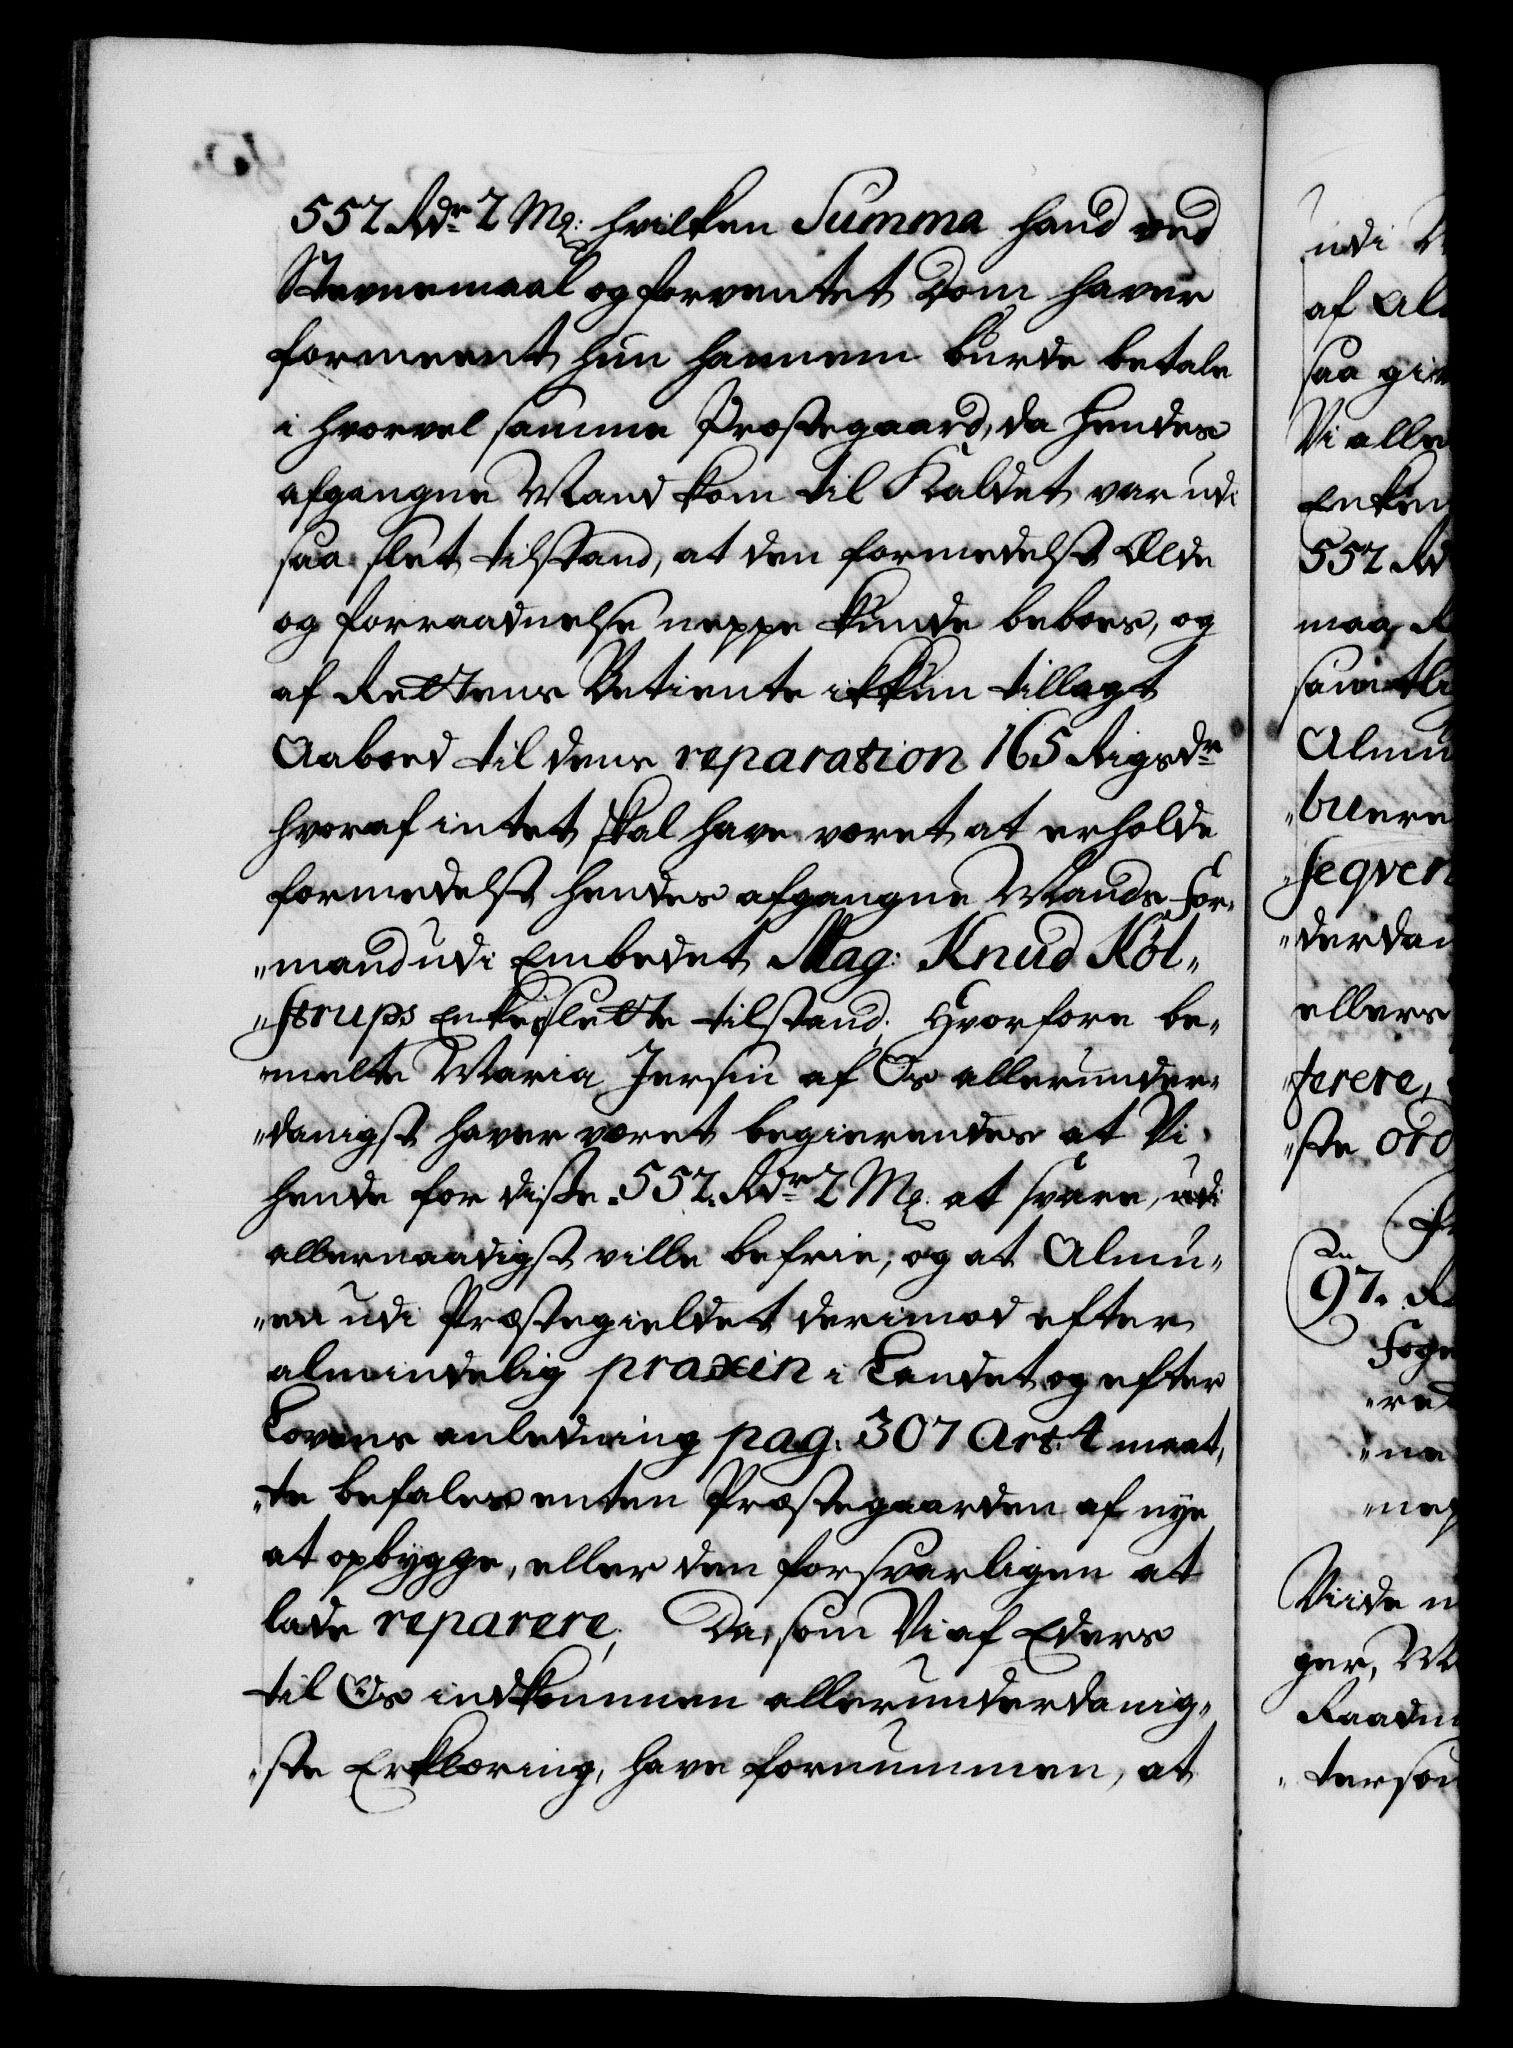 552 Rdr 2 Mk: hvilken Summa hand ved
Stevnemaal og forventet Dom haver
formeent hun hannem burde betale
i hvorvel samme Præstegaard, da Hendes
afgangne Mand kom til Kaldet var udi
saa slet tilstand, at den formedelst Ælde
og forraadnelse neppe kunde beboes, og
af Rettens Betiente ikkun tillagt
Aaboed til dens reparation 165 Rigsdr
hvoraf intet skal have været at erholde
formedelst hendes afgangne Mands For-
„mand udi Embedet Mag: Knud Röl„
„strups Enkes slette tilstand; Hvorfore be„
melte Maria Jersin af Os allerunder„
„danigst haver været begierendes at Vi
hende for diste 552. Rdr 2 Mk. at svare, udi
allernaadigst ville befrie, og at Almu„
„en udi Præstegieldet derimod efter
almindelig praxin i Landet og efter
Lovens anledning pag: 307 Art: 4 maat„
„te befales enten Præstegaarden af nye
at opbygge, eller den forsvarligen at
lade reparere, Da, som Vi af Eders
til Os indkommen allerunderdanig„
„ste Erklæring, have fornummen, at
udi
af Al
saa gi
Vi alle
Enken
552 Rd
maa
samtli
Almu
„buere
„seqven
„derdan
ellers
„ferere,
„ste ord
97.
Foge
„red
„ne
„neg
Viide
ger,
Raadm
„terson